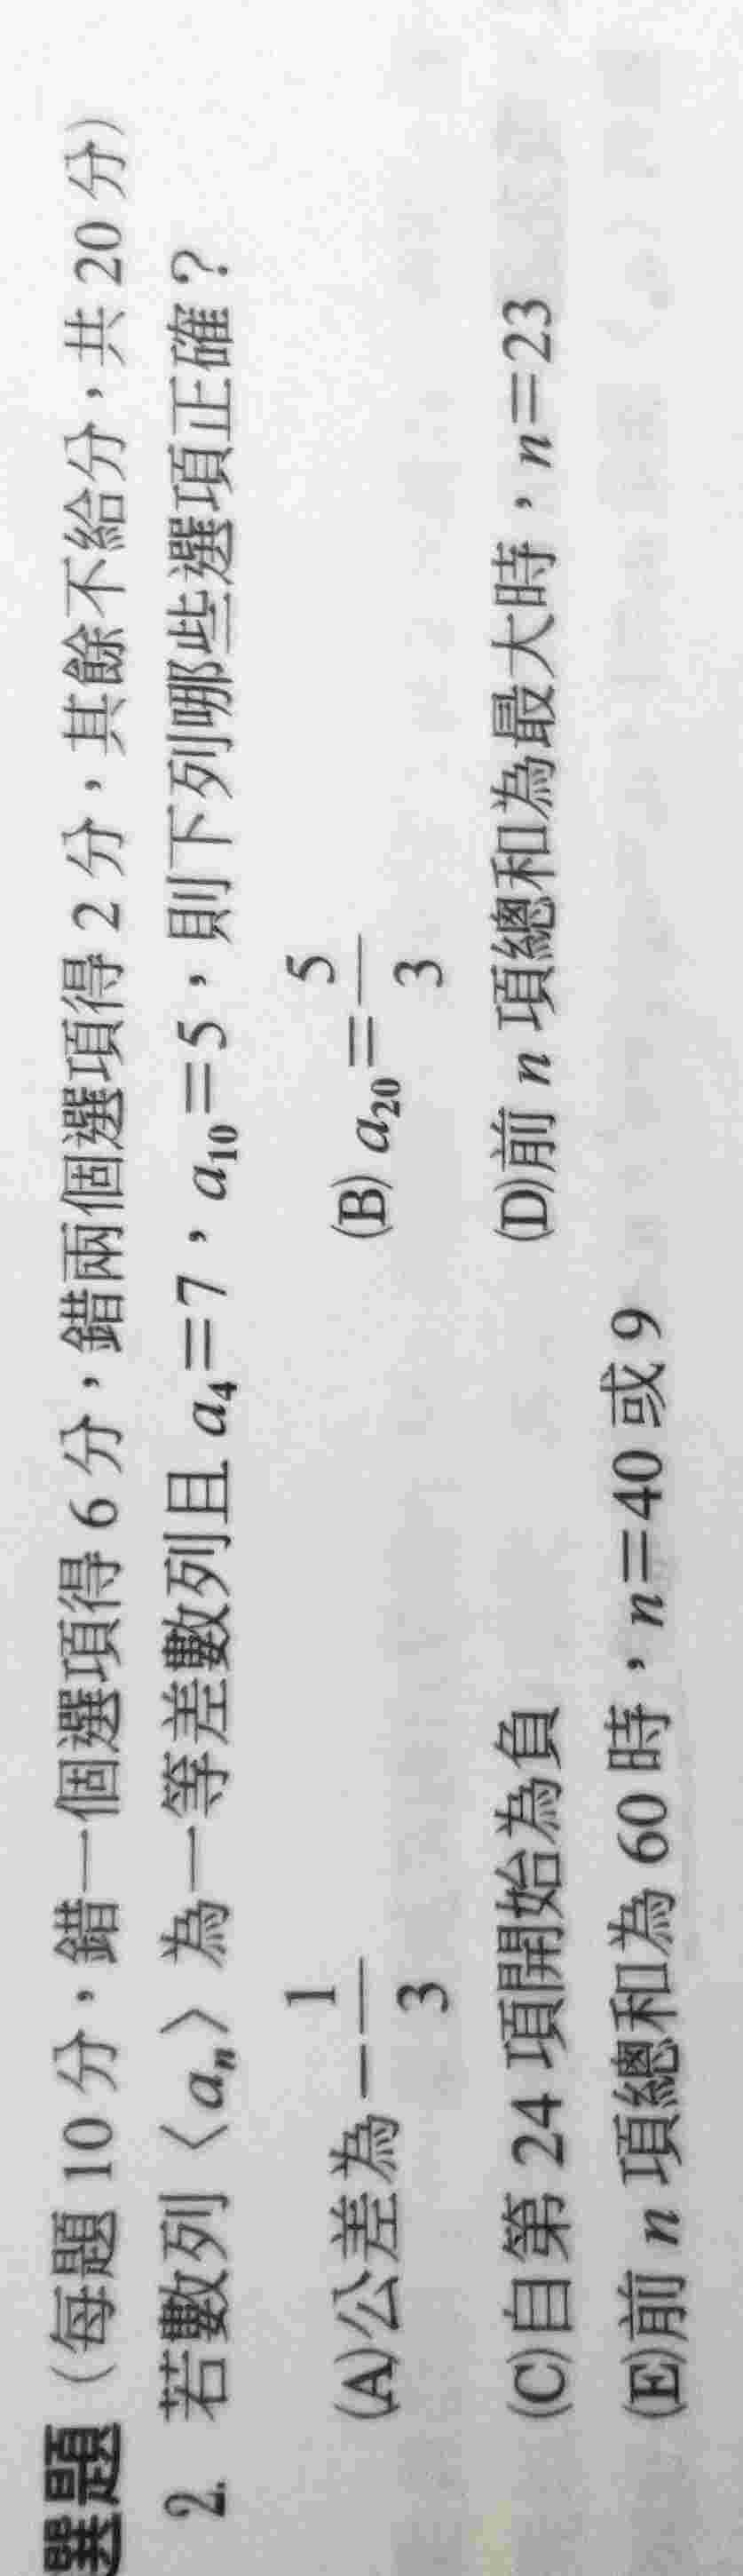 選題（每題 10 分，錯一個選項得 6 分，錯兩個選項得 2 分，其餘不給分，共 20 分）
2. 若數列〈aₙ〉為一等差數列且 a₄＝7，a₁₀＝5，則下列哪些選項正確？
(A)公差為 −1/3 (B) a₂₀＝5/3
(C)自第 24 項開始為負 (D)前 n 項總和為最大時，n＝23
(E)前 n 項總和為 60 時，n＝40 或 9